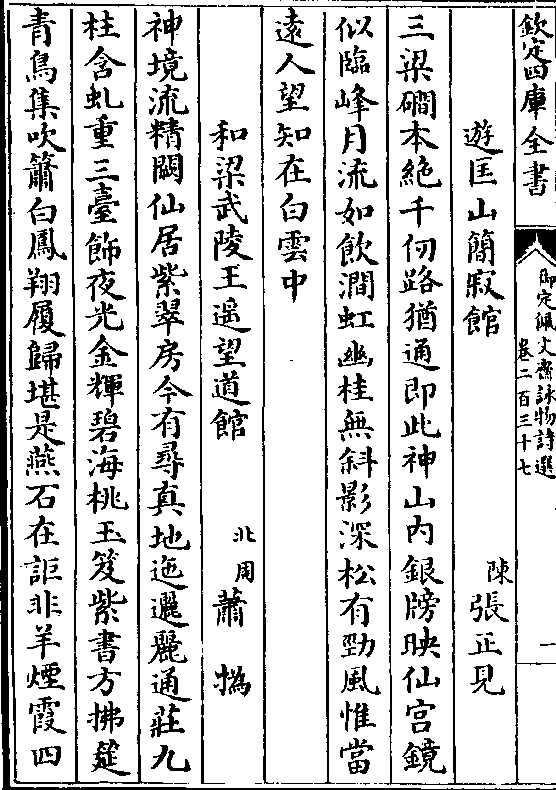 欽定四庫全書
御定佩文齋詠物詩選
卷二百三十七
一
遊匡山簡寂館
陳張正見
三梁磵本絶千仞路猶通即此神山內銀牓映仙宫鏡
似臨峰月流如飲澗虹幽桂無斜影深松有勁風惟當
遠人望知在白雲中
和梁武陵王遥望道館
北周蕭撝
神境流精闕仙居紫翠房今有尋真地迤邐麗通莊九
柱含虬重三臺飾夜光金輝碧海桃玉笈紫書方拂筵
青鳥集吹簫白鳳翔履歸堪是燕石在詎非羊煙霞四